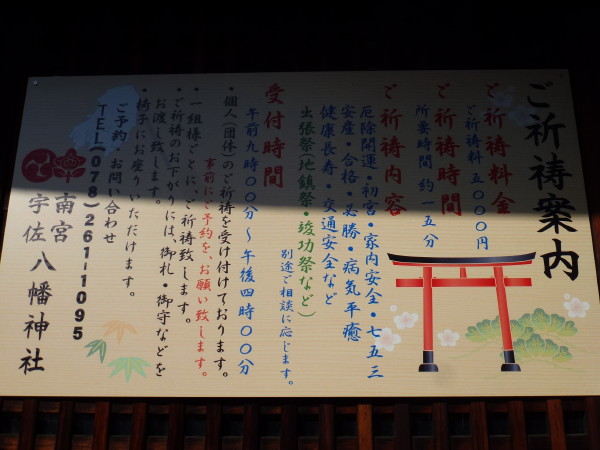 ご祈祷案内
ご祈祷料金
ご祈祷料 五〇〇〇円
ご祈祷時間
所要時間 約一五分
ご祈祷内容
厄除開運・初宮・家内安全・七五三
安産・合格・必勝・病気平癒
健康長寿・交通安全など
出張祭(地鎮祭・竣功祭など)
別途ご相談に応じます。
受付時間
午前九時〇〇分～午後四時〇〇分
・個人(団体)のご祈祷を受け付けております。
事前にご予約を、お願い致します。
・一組様ごとに、ご祈祷致します。
・ご祈祷のお下がりには、御札・御守などを
お渡し致します。
・椅子にお座りいただけます。
ご予約・お問い合わせ
TEL(078)261-1095
南宮
宇佐八幡神社